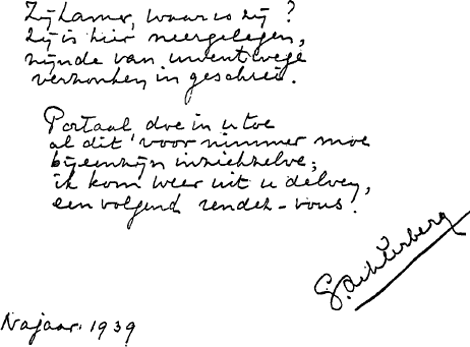 Zij kamer, waar is zij?
Zij is hier neergelegen,
zijnde van uwentwege
verzonken in geschrei.
Portaal, doe in u toe
al dit voor nimmer moe
bijeenzijn in zichzelve;
ik kom weer uit u delven,
een volgend rendez-vous.
G. Achterberg
Najaar 1939